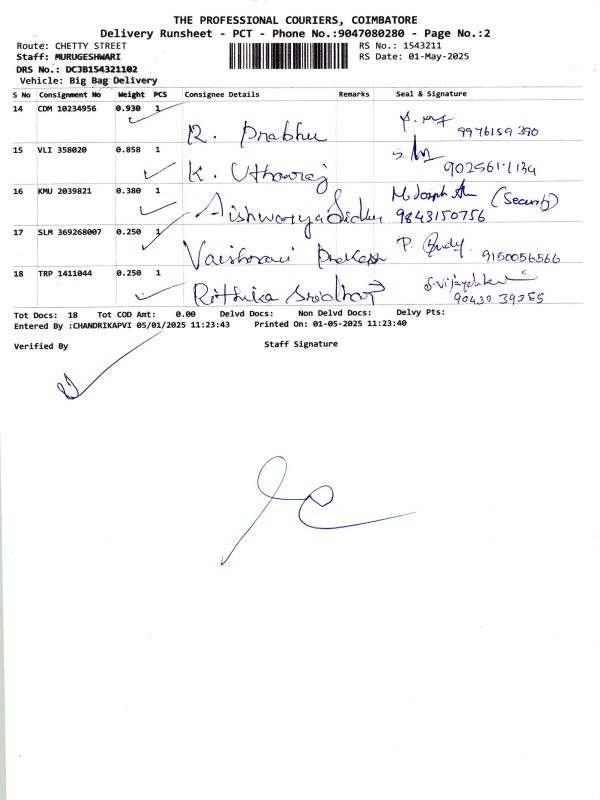 THE PROFESSIONAL COURIERS, COIMBATORE
Delivery Runsheet - PCT - Phone No.:9047080280 - Page No.:2
Route: CHETTY STREET
RS No.: 1543211
Staff: MURUGESHWARI
RS Date: 01-May-2025
DRS No.: DCJB154321102
Vehicle: Big Bag Delivery
S No Consignment No Weight PCS Consignee Details Remarks Seal & Signature
14 CDM 10234956 0.930 1
R. Prabhu 9976159390
15 VLI 358020 0.858 1
K. 
16 KMU 2039821 0.380 1
(Security)
Aishwarya 9843150756
17 SLM 369268007 0.250 1
Vaishnavi Prakash P. 9150056566
18 TRP 1411044 0.250 1
Rithika Sridhar
Tot Docs: 18 Tot COD Amt: 0.00 Delvd Docs: Non Delvd Docs: Delvy Pts:
Entered By :CHANDRIKAPVI 05/01/2025 11:23:43 Printed On: 01-05-2025 11:23:40
Verified By Staff Signature